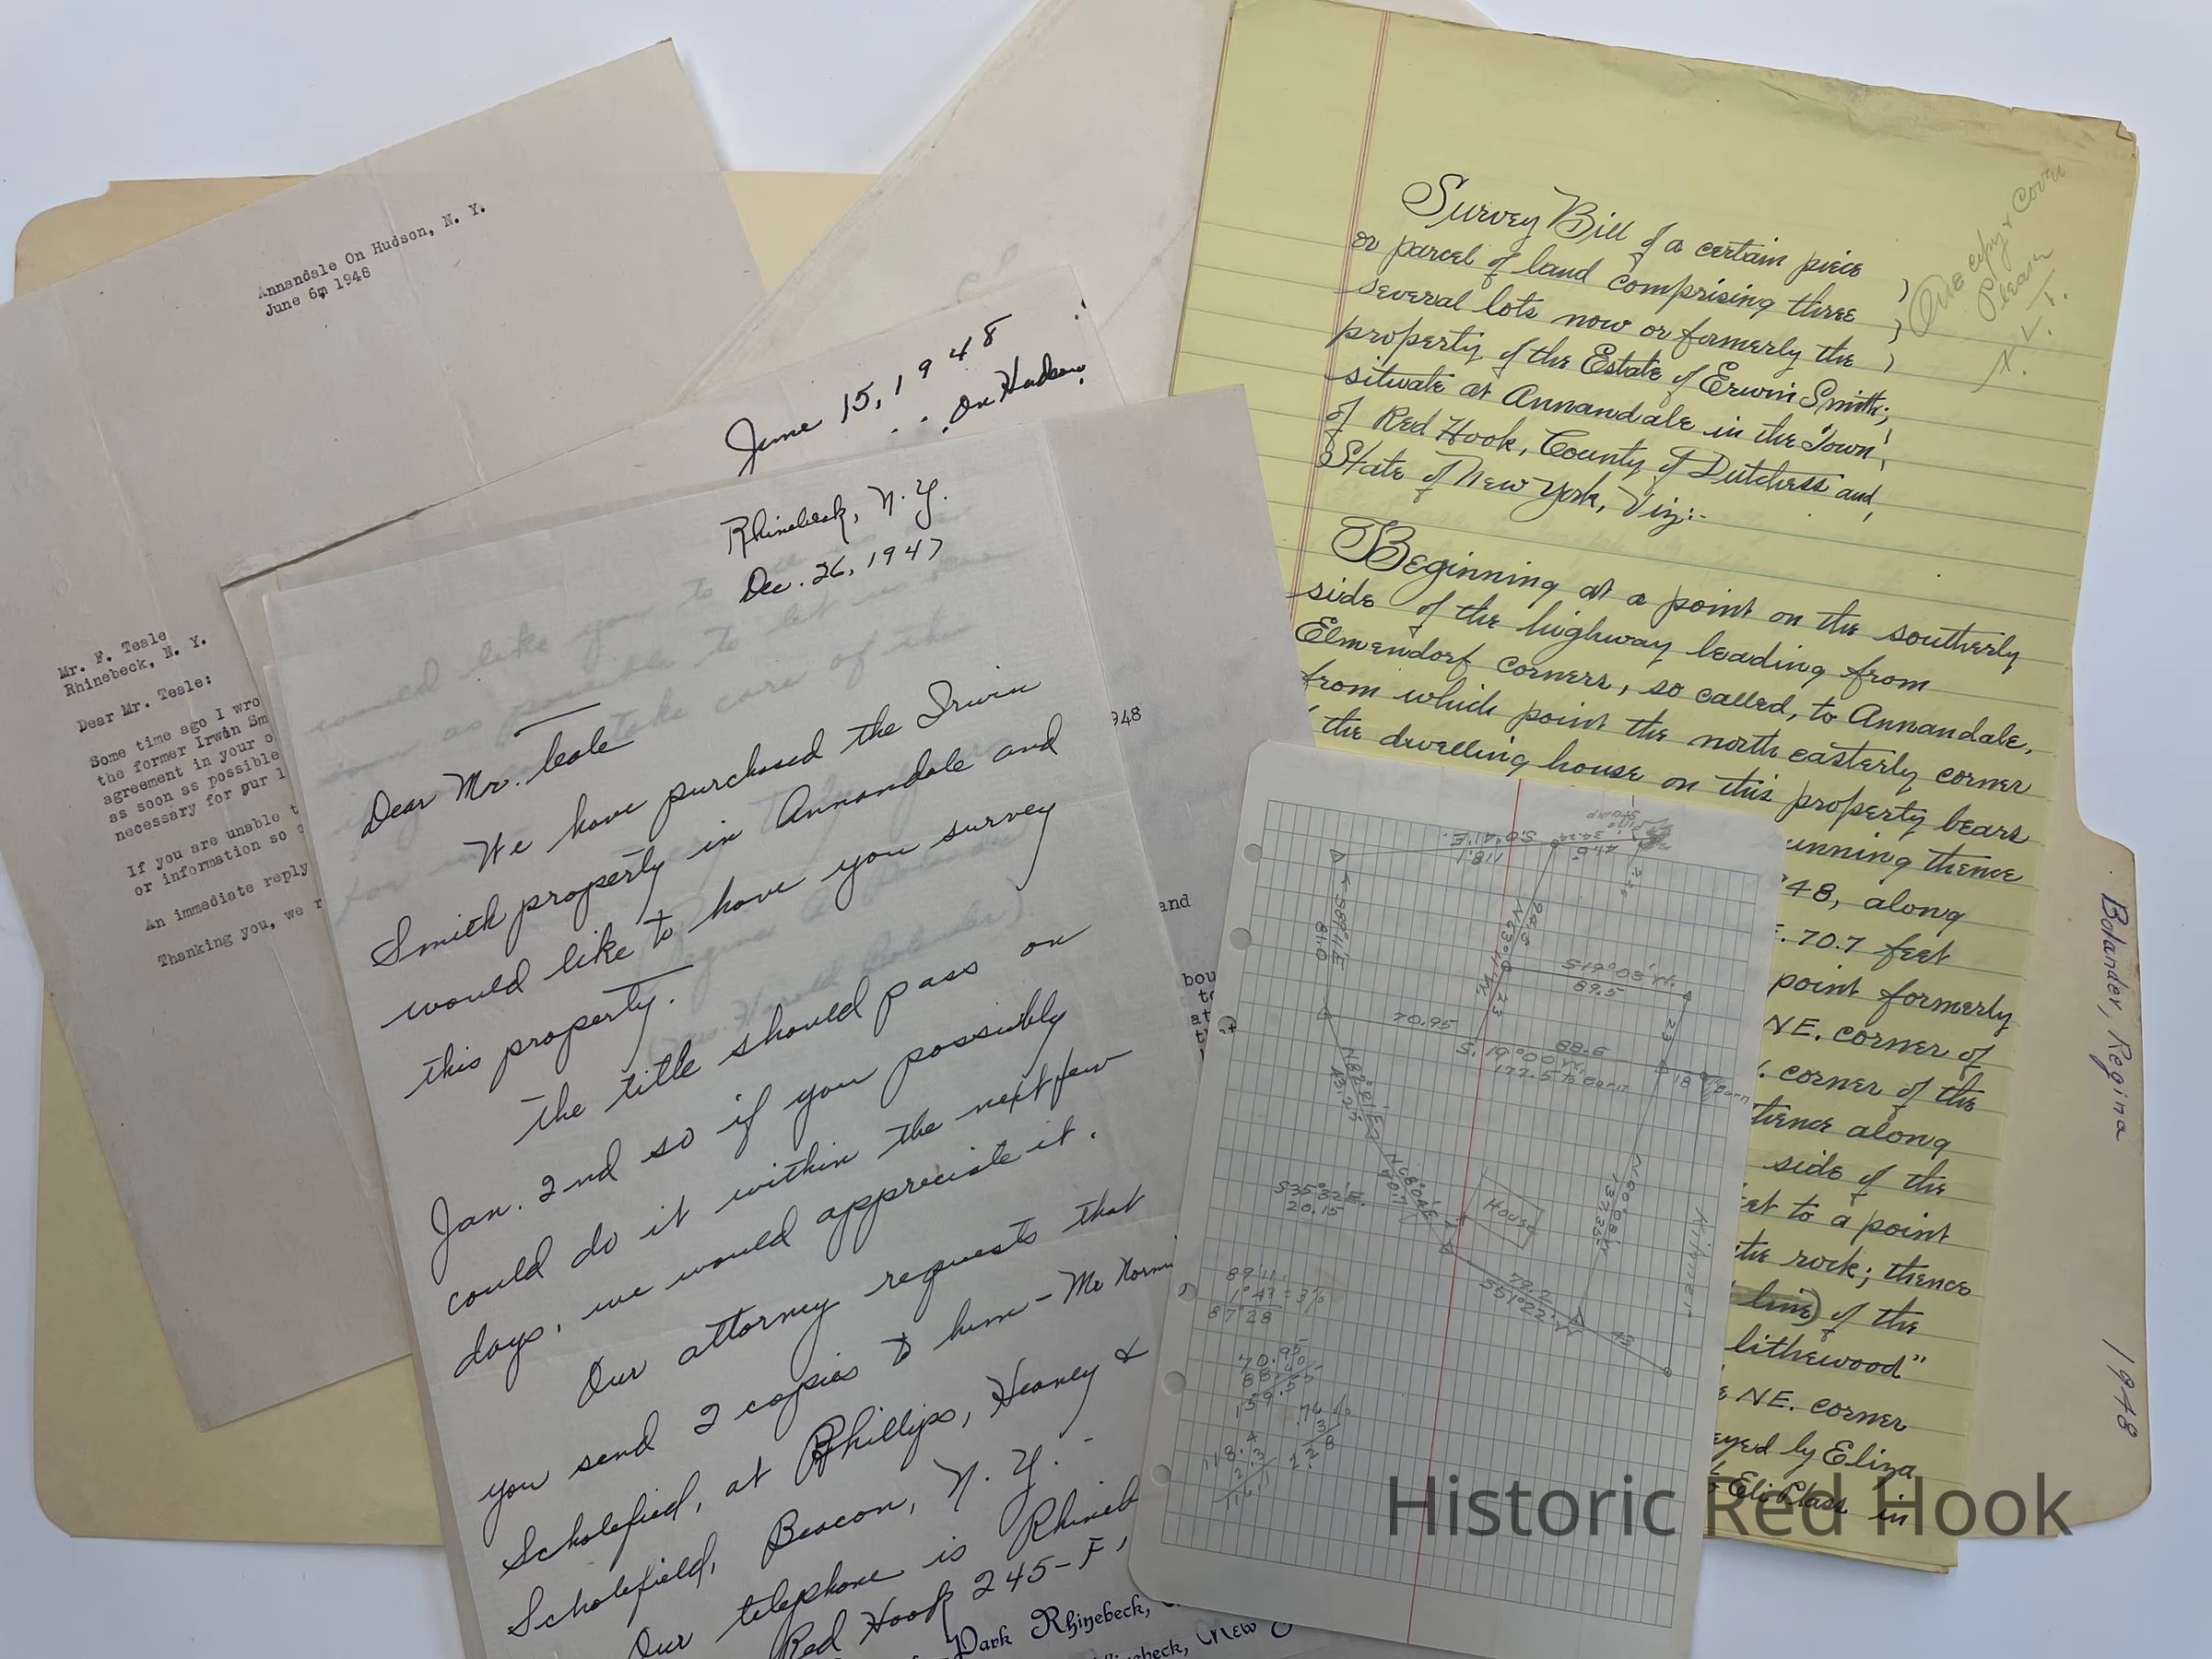 Annandale On Hudson, N. Y.
June 6m 1948
Mr. F. Teale
Rhinebeck, N. Y.
Dear Mr. Teale:
Some time ago I wro
the former Irwin Sm
agreement in your o
as soon as possible
necessary for our l
If you are unable t
or information so
An immediate reply
Thanking you, we r
June 15, 1948
On Hudson,
Rhinebeck, N.Y.
Dec. 26, 1947
Dear Mr. Teale
We have purchased the Irwin
Smith property in Annandale and
would like to have you survey
this property.
The title should pass on
Jan. 2nd so if you possibly
could do it within the next few
days, we would appreciate it.
Our attorney requests that
you send 2 copies to him - Mr Norm
Scholefied, at Phillips, Heaney &
Scholefield, Beacon, N.Y. -
Our telephone is Rhineb
Red Hook 245-F,
Park Rhinebeck,
inebeck, New
948
and
bou
to
at
Survey Bill of a certain piece
or parcel of land comprising three
several lots now or formerly the
property of the Estate of Erwin Smith;
situate at Annandale in the Town
of Red Hook, County of Dutchess and
State of New York, Viz:-
One copy & Cover
Please
Beginning at a point on the southerly
side of the highway leading from
Elmendorf corners, so called, to Annandale,
from which point the north easterly corner
the dwelling house on this property bears
unning thence
48, along
70.7 feet
point formerly
NE. corner of
corner of the
thence along
side of the
et to a point
the rock; thence
line) of the
lithewood"
NE. corner
eyed by Eliza
Eli Plass in
S.0°41'E.
118.1
34.24
44.5
S89°11'E
81.0
94.5
N63°11'W.
23
S19°03'W.
89.5
23
70.95
88.6
S.19°00'W.
177.5 to Barn
18
Barn
N82°21'E
43.25
N68°04'E
70.7
S35°32'E.
20.15
House
N60°08'W
137.35
Kilmer
79.2
S51°22'W
43
89°11'
1°43
87°28
70.95
159.55
118.4
2.3
116.1
Bolander, Regina
1948
Historic Red Hook